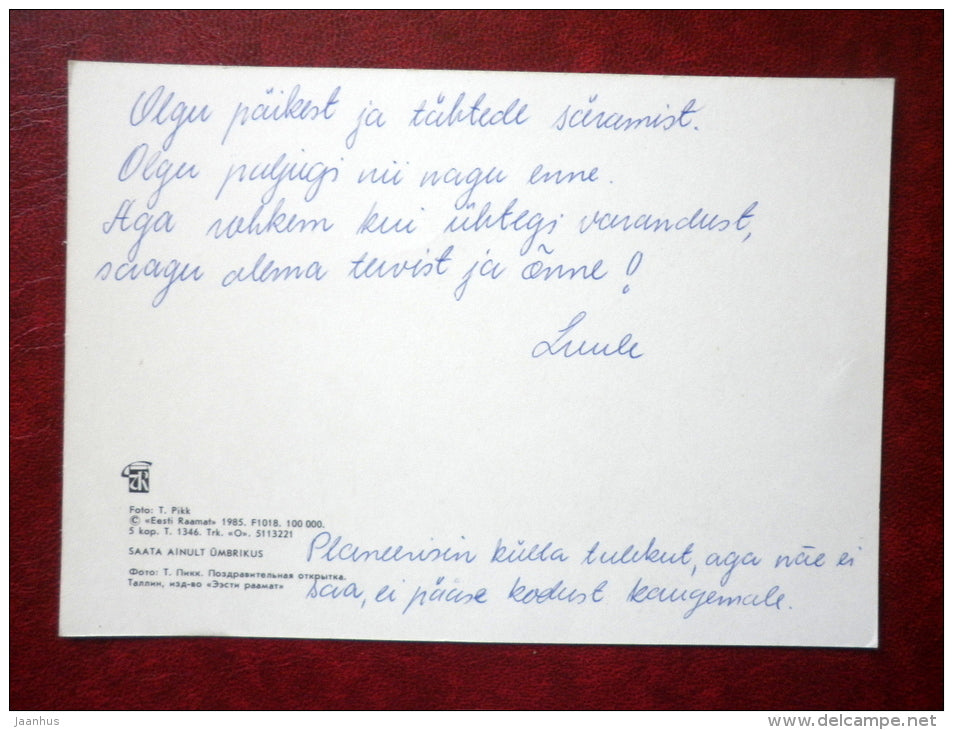 Olgu päikest ja tähtede säramist.
Olgu paljugi nii nagu enne.
Aga rohkem kui ühtegi varandust,
saagu olema tervist ja õnne!
Luule
Foto: T. Pikk
© «Eesti Raamat» 1985. F1018. 100 000.
5 kop. T. 1346. Trk. «O». 5113221
SAATA AINULT ÜMBRIKUS
Фото: Т. Пикк. Поздравительная открытка.
Таллин, изд-во «Ээсти раамат»
Planeerisin külla tulekut, aga näe ei
saa, ei pääse kodust kaugemale.
Jaanhus
www.delcampe.net